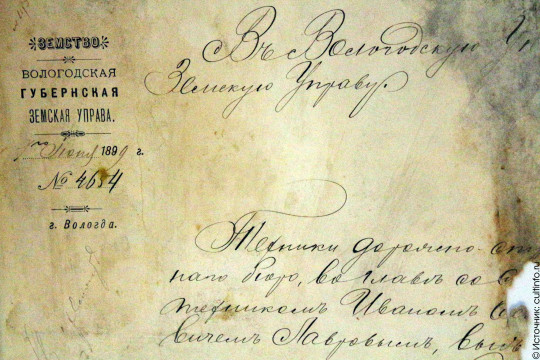 ЗЕМСТВО.
ВОЛОГОДСКАЯ
ГУБЕРНСКАЯ
ЗЕМСКАЯ УПРАВА.
Іюня 1899 г.
№ 4654
г. Вологда.
Въ Вологодскую
Земскую Управу.
Техники дорожно-
наго бюро, во главѣ со
техникомъ Иваномъ
вичемъ Лавровымъ,
© Источник: cultinfo.ru